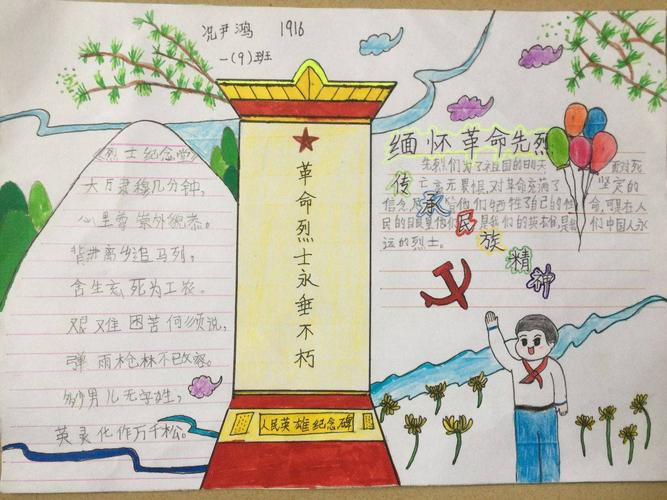 况尹鸿 1916
一(9)班
《烈士纪念堂》
大厅肃穆几分钟,
心里尊崇外貌恭。
背井离乡追马列,
舍生忘死为工农。
艰难困苦何须说,
弹雨枪林不改容。
男儿无姓,
英灵化作万千松。
革命烈士永垂不朽
人民英雄纪念碑
缅怀革命先烈
先烈们为了祖国的明天 面对死
亡毫无畏惧,对革命充满了 坚定的
信念 他们牺牲了自己的 命,可是在人
民的目里他们 是我们的英雄,是 们中国人永
远的烈士。
传承民族精神